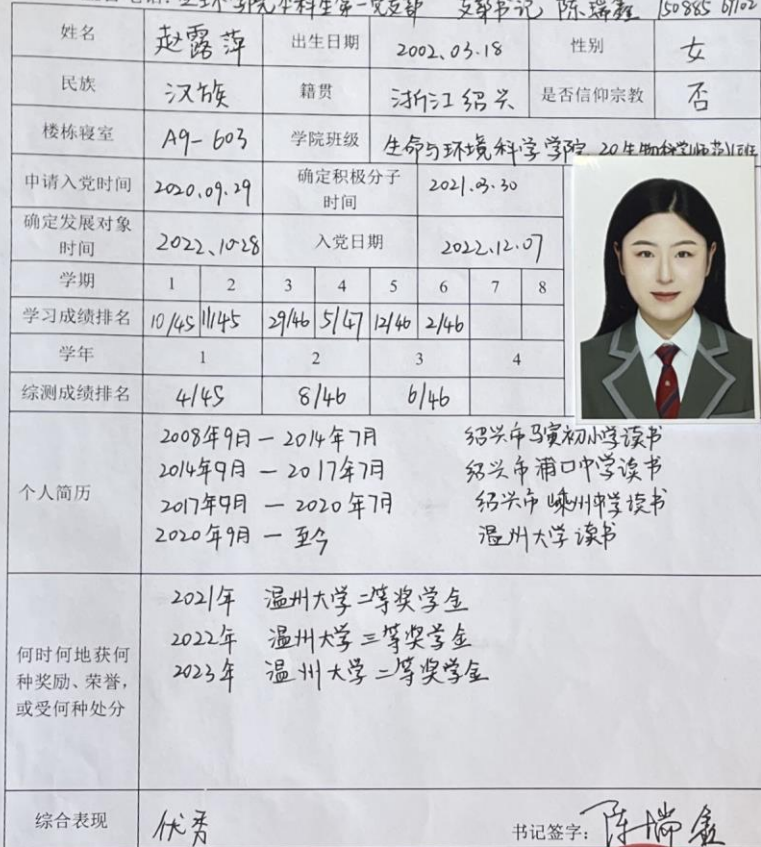 支部书记 陈瑞鑫
姓名 赵露萍 出生日期 2002.03.18 性别 女
民族 汉族 籍贯 浙江绍兴 是否信仰宗教 否
楼栋寝室 A9-603 学院班级 生命与环境科学学院 20生物科学(师范)1班
申请入党时间 2020.09.29 确定积极分子时间 2021.03.30
确定发展对象时间 2022.10.28 入党日期 2022.12.07
学期 1 2 3 4 5 6 7 8
学习成绩排名 10/45 11/45 29/46 5/47 12/46 2/46
学年 1 2 3 4
综测成绩排名 4/45 8/46 6/46
个人简历
2008年9月一2014年7月 绍兴市马寅初小学读书
2014年9月一2017年7月 绍兴市浦口中学读书
2017年9月一2020年7月 绍兴市嵊州中学读书
2020年9月一至今 温州大学读书
何时何地获何种奖励、荣誉,或受何种处分
2021年 温州大学二等奖学金
2022年 温州大学三等奖学金
2023年 温州大学二等奖学金
综合表现 优秀 书记签字: 陈瑞鑫